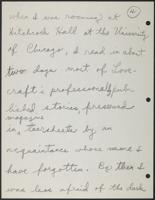 4
when I was rooming at
Hitchcock Hall at the University
of Chicago, I read in about
two days most of Love-
craft's professionally pub-
lished stories, preserved
magazine
in, tearsheets by an
acquaintance whose name I
have forgotten. By then I
was less afraid of the dark